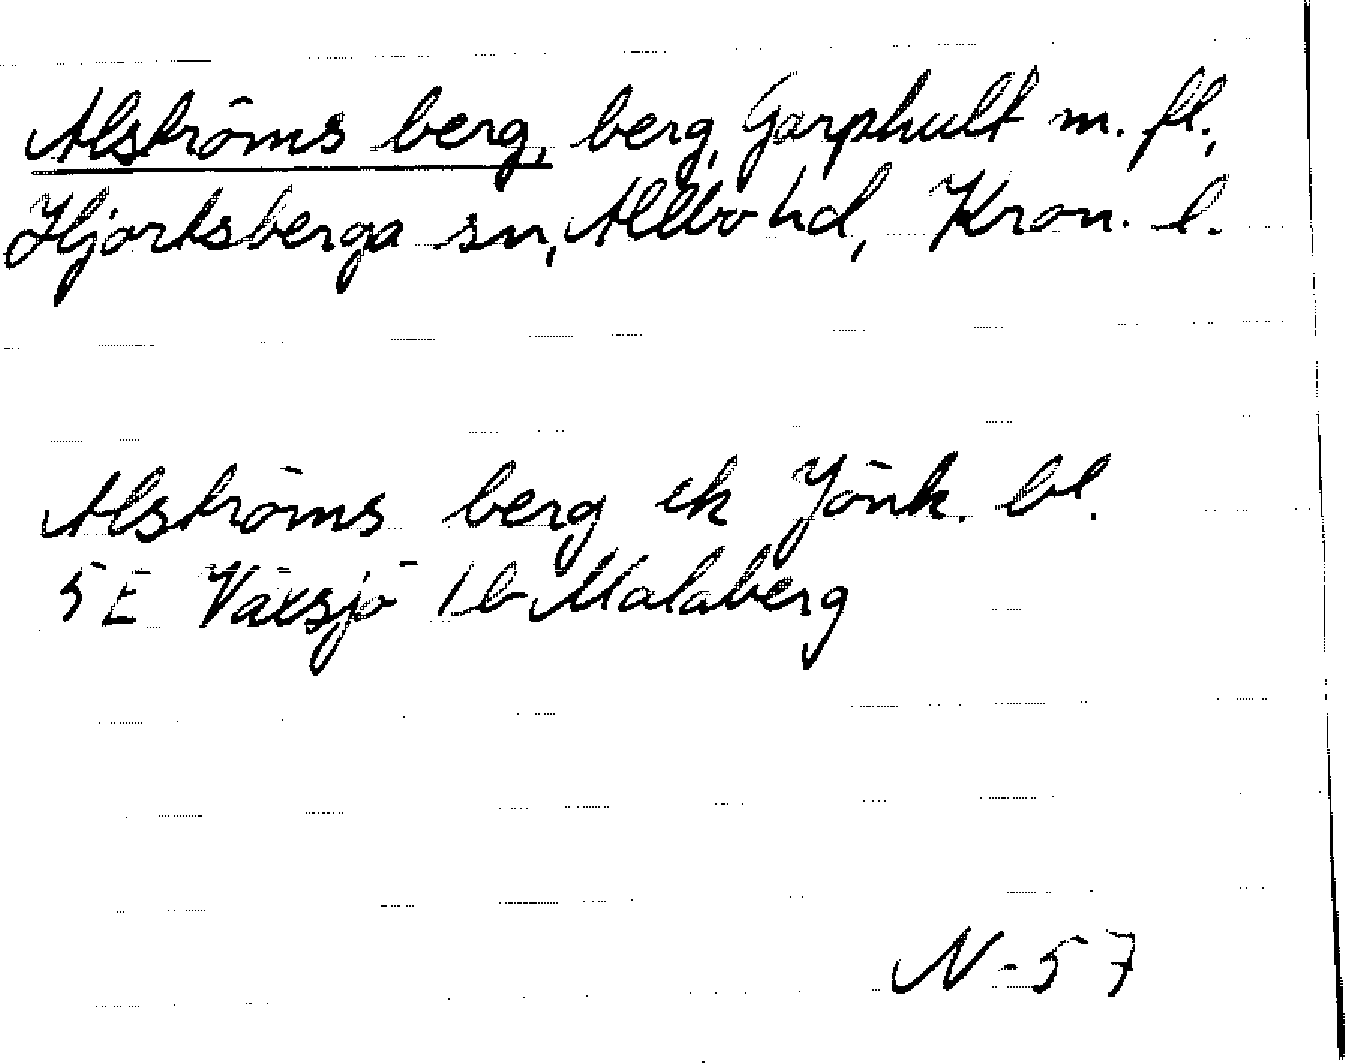 Alströms berg, berg, Garphult m. fl.,
Hjortsberga sn, Allbo hd, Kron. l.
Alströms berg ek Jönk. bl.
5E Växsjö 1b Malaberg
N-57